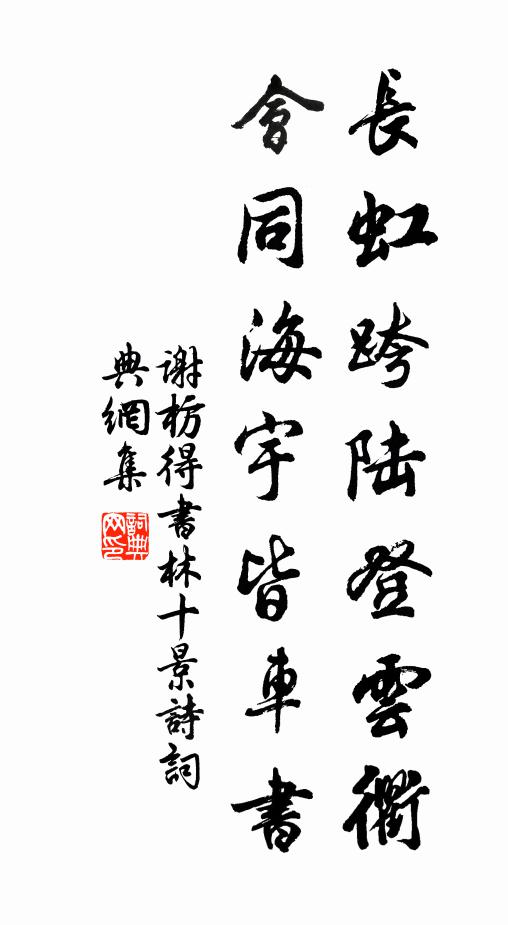 長虹跨陆登雲衢
會同海宇皆車書
谢枋得書林十景詩詞
典網集
詞典網印